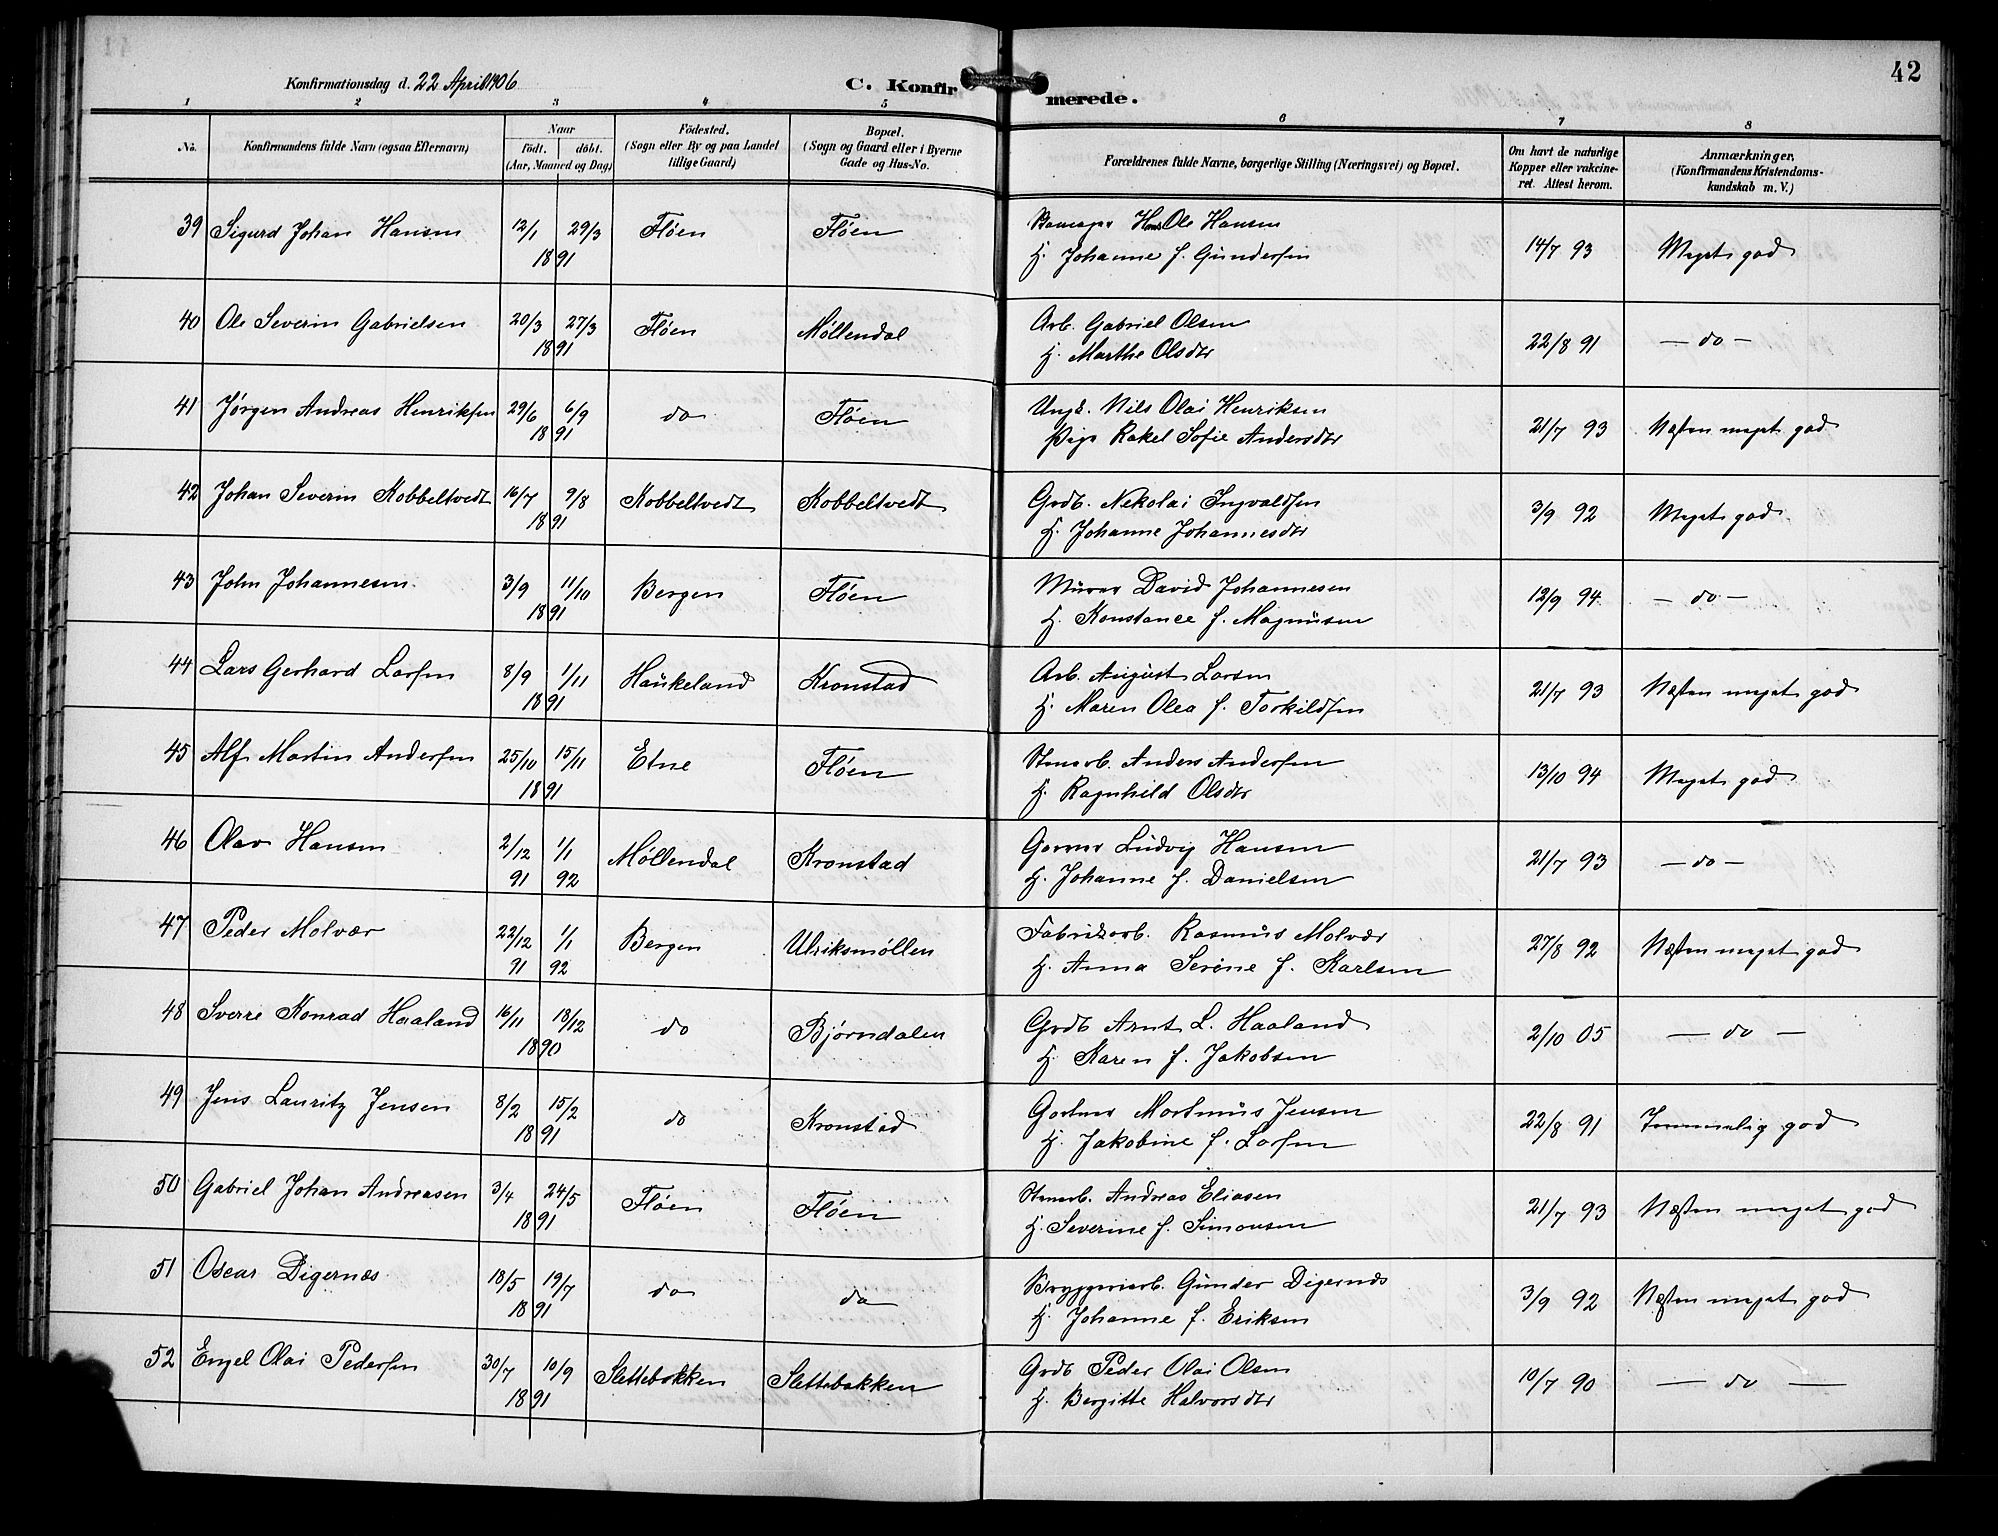 42
Konfirmationsdag d. 22 April 1906
C. Konfirmerede.
1 2 3 4 5 6 7 8
No. Konfirmandens fulde Navn (ogsaa Efternavn) Naar födt. döbt. (Aar, Maaned og Dag) Födested. (Sogn eller By og paa Landet tillige Gaard) Bopæl. (Sogn og Gaard eller i Byerne Gade og Hus-No. Forældrenes fulde Navne, borgerlige Stilling (Næringsvei) og Bopæl. Om havt de naturlige Kopper eller vakcineret. Attest herom. Anmærkninger. (Konfirmandens Kristendomskundskab m. V.)
39 Sigurd Johan Hansen 12/1 29/3 1891 Fløen Fløen Hans Ole Hansen 14/7 93 Meget god
H. Johanne f. Gundersen
40 Ole Severin Gabrielsen 20/3 27/3 1891 Fløen Møllendal Arb. Gabriel Olsen 22/8 91 — do —
H. Marthe Olsdtr
41 Jørgen Andreas Henriksen 29/6 6/9 1891 do Fløen Ungk. Nils Olai Henriksen 21/7 93 Næsten meget god
Pige Rakel Sofie Andersdtr
42 Johan Severin Kobbeltvedt 16/7 9/8 1891 Kobbeltvedt Kobbeltvedt Grdb. Nekolai Ingvaldsen 3/9 92 Meget god
H. Johanne Johannesdtr
43 John Johannesen 3/9 11/10 1891 Bergen Fløen Murer David Johannesen 12/9 94 — do —
H. Konstance f. Magnusen
44 Lars Gerhard Larsen 8/9 1/11 1891 Haukeland Kronstad Arb. August Larsen 21/7 93 Næsten meget god
H. Maren Olea f. Torkildsen
45 Alf Martin Andersen 25/10 15/11 1891 Etne Fløen Stenarb. Anders Andersen 13/10 94 Meget god
H. Ragnhild Olsdtr
46 Olav Hansen 2/12 91 1/1 92 Møllendal Kronstad Garver Ludvig Hansen 21/7 93 — do —
H. Johanne f. Danielsen
47 Peder Molvær 22/12 91 1/1 92 Bergen Ulriksmøllen Fabrikarb. Rasmus Molvær 27/8 92 Næsten meget god
H. Anna Serine f. Karlsen
48 Sverre Konrad Haaland 16/11 18/12 1890 do Bjørndalen Grdb Arnt L. Haaland 2/10 05 — do —
H. Karen f. Jakobsen
49 Jens Lauritz Jensen 8/2 15/2 1891 do Kronstad Gartner Martinus Jensen 22/8 91 Temmelig god
H. Jakobine f. Larsen
50 Gabriel Johan Andreasen 3/4 24/5 1891 Fløen Fløen Stenarb. Andreas Eliasen 21/7 93 Næsten meget god
H. Severine f. Simonsen
51 Oscar Digernæs 18/5 19/7 1891 do do Bryggeriarb. Gunder Digernæs 3/9 92 Næsten meget god
H. Johanne f. Eriksen
52 Engel Olai Pedersen 30/7 10/9 1891 Slettebakken Slettebakken Grdb Peder Olai Olsen 10/7 90 — do —
H. Bergitte Halvorsdtr